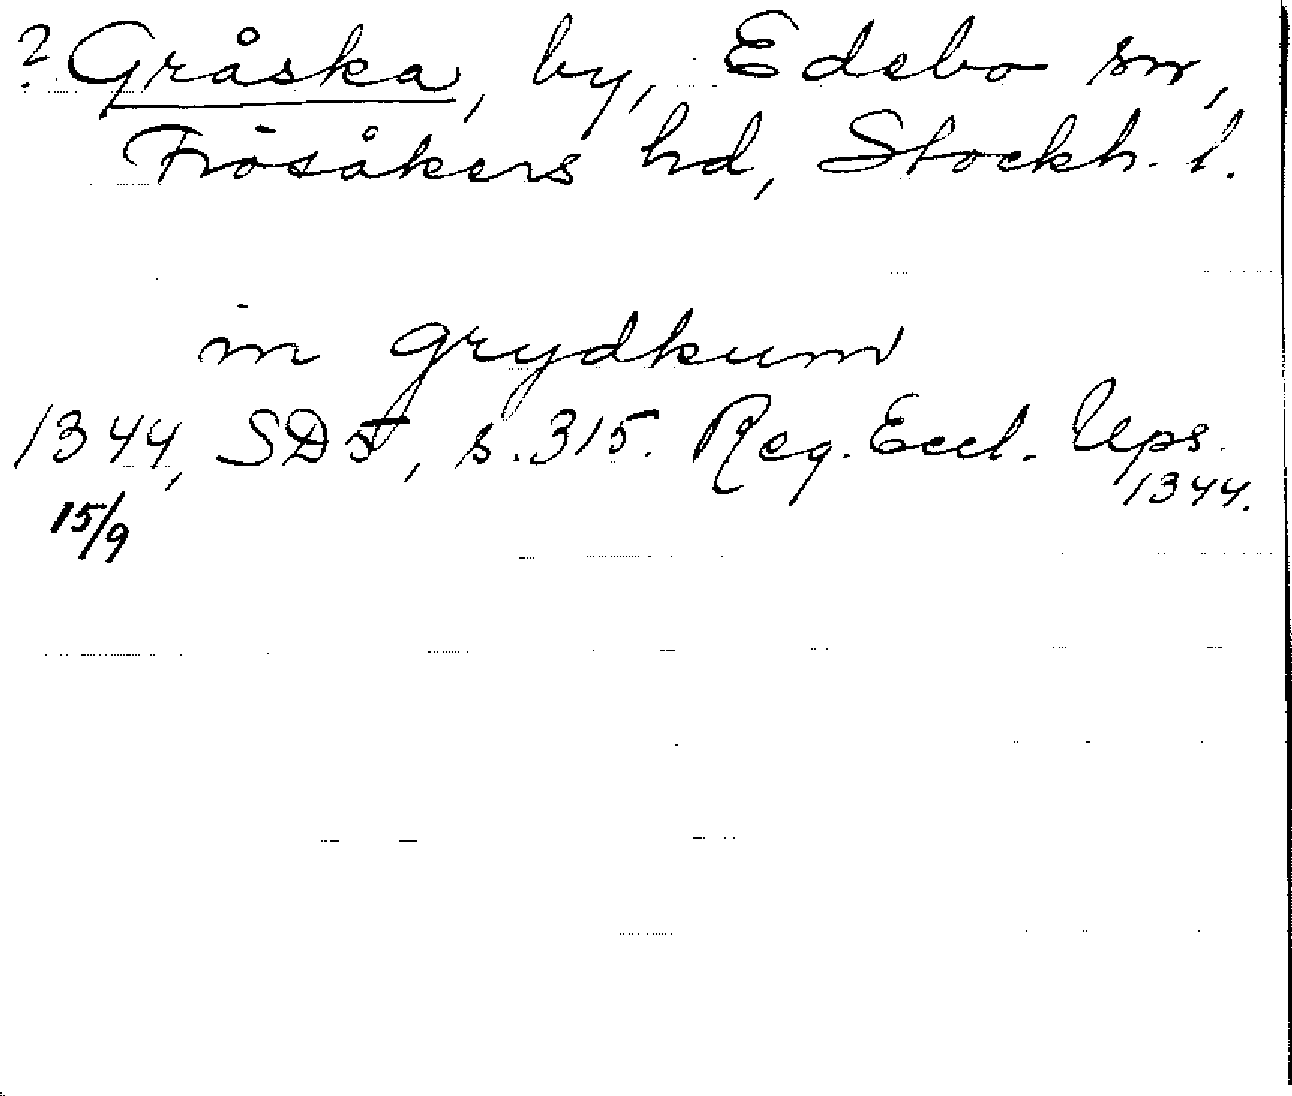 ? Gråska, by, Edebo sn,
Frösåkers hd, Stockh. l.
in grydkum
1344, SD 5, s. 315. Reg. Eccl. Ups.
1344.
15/9